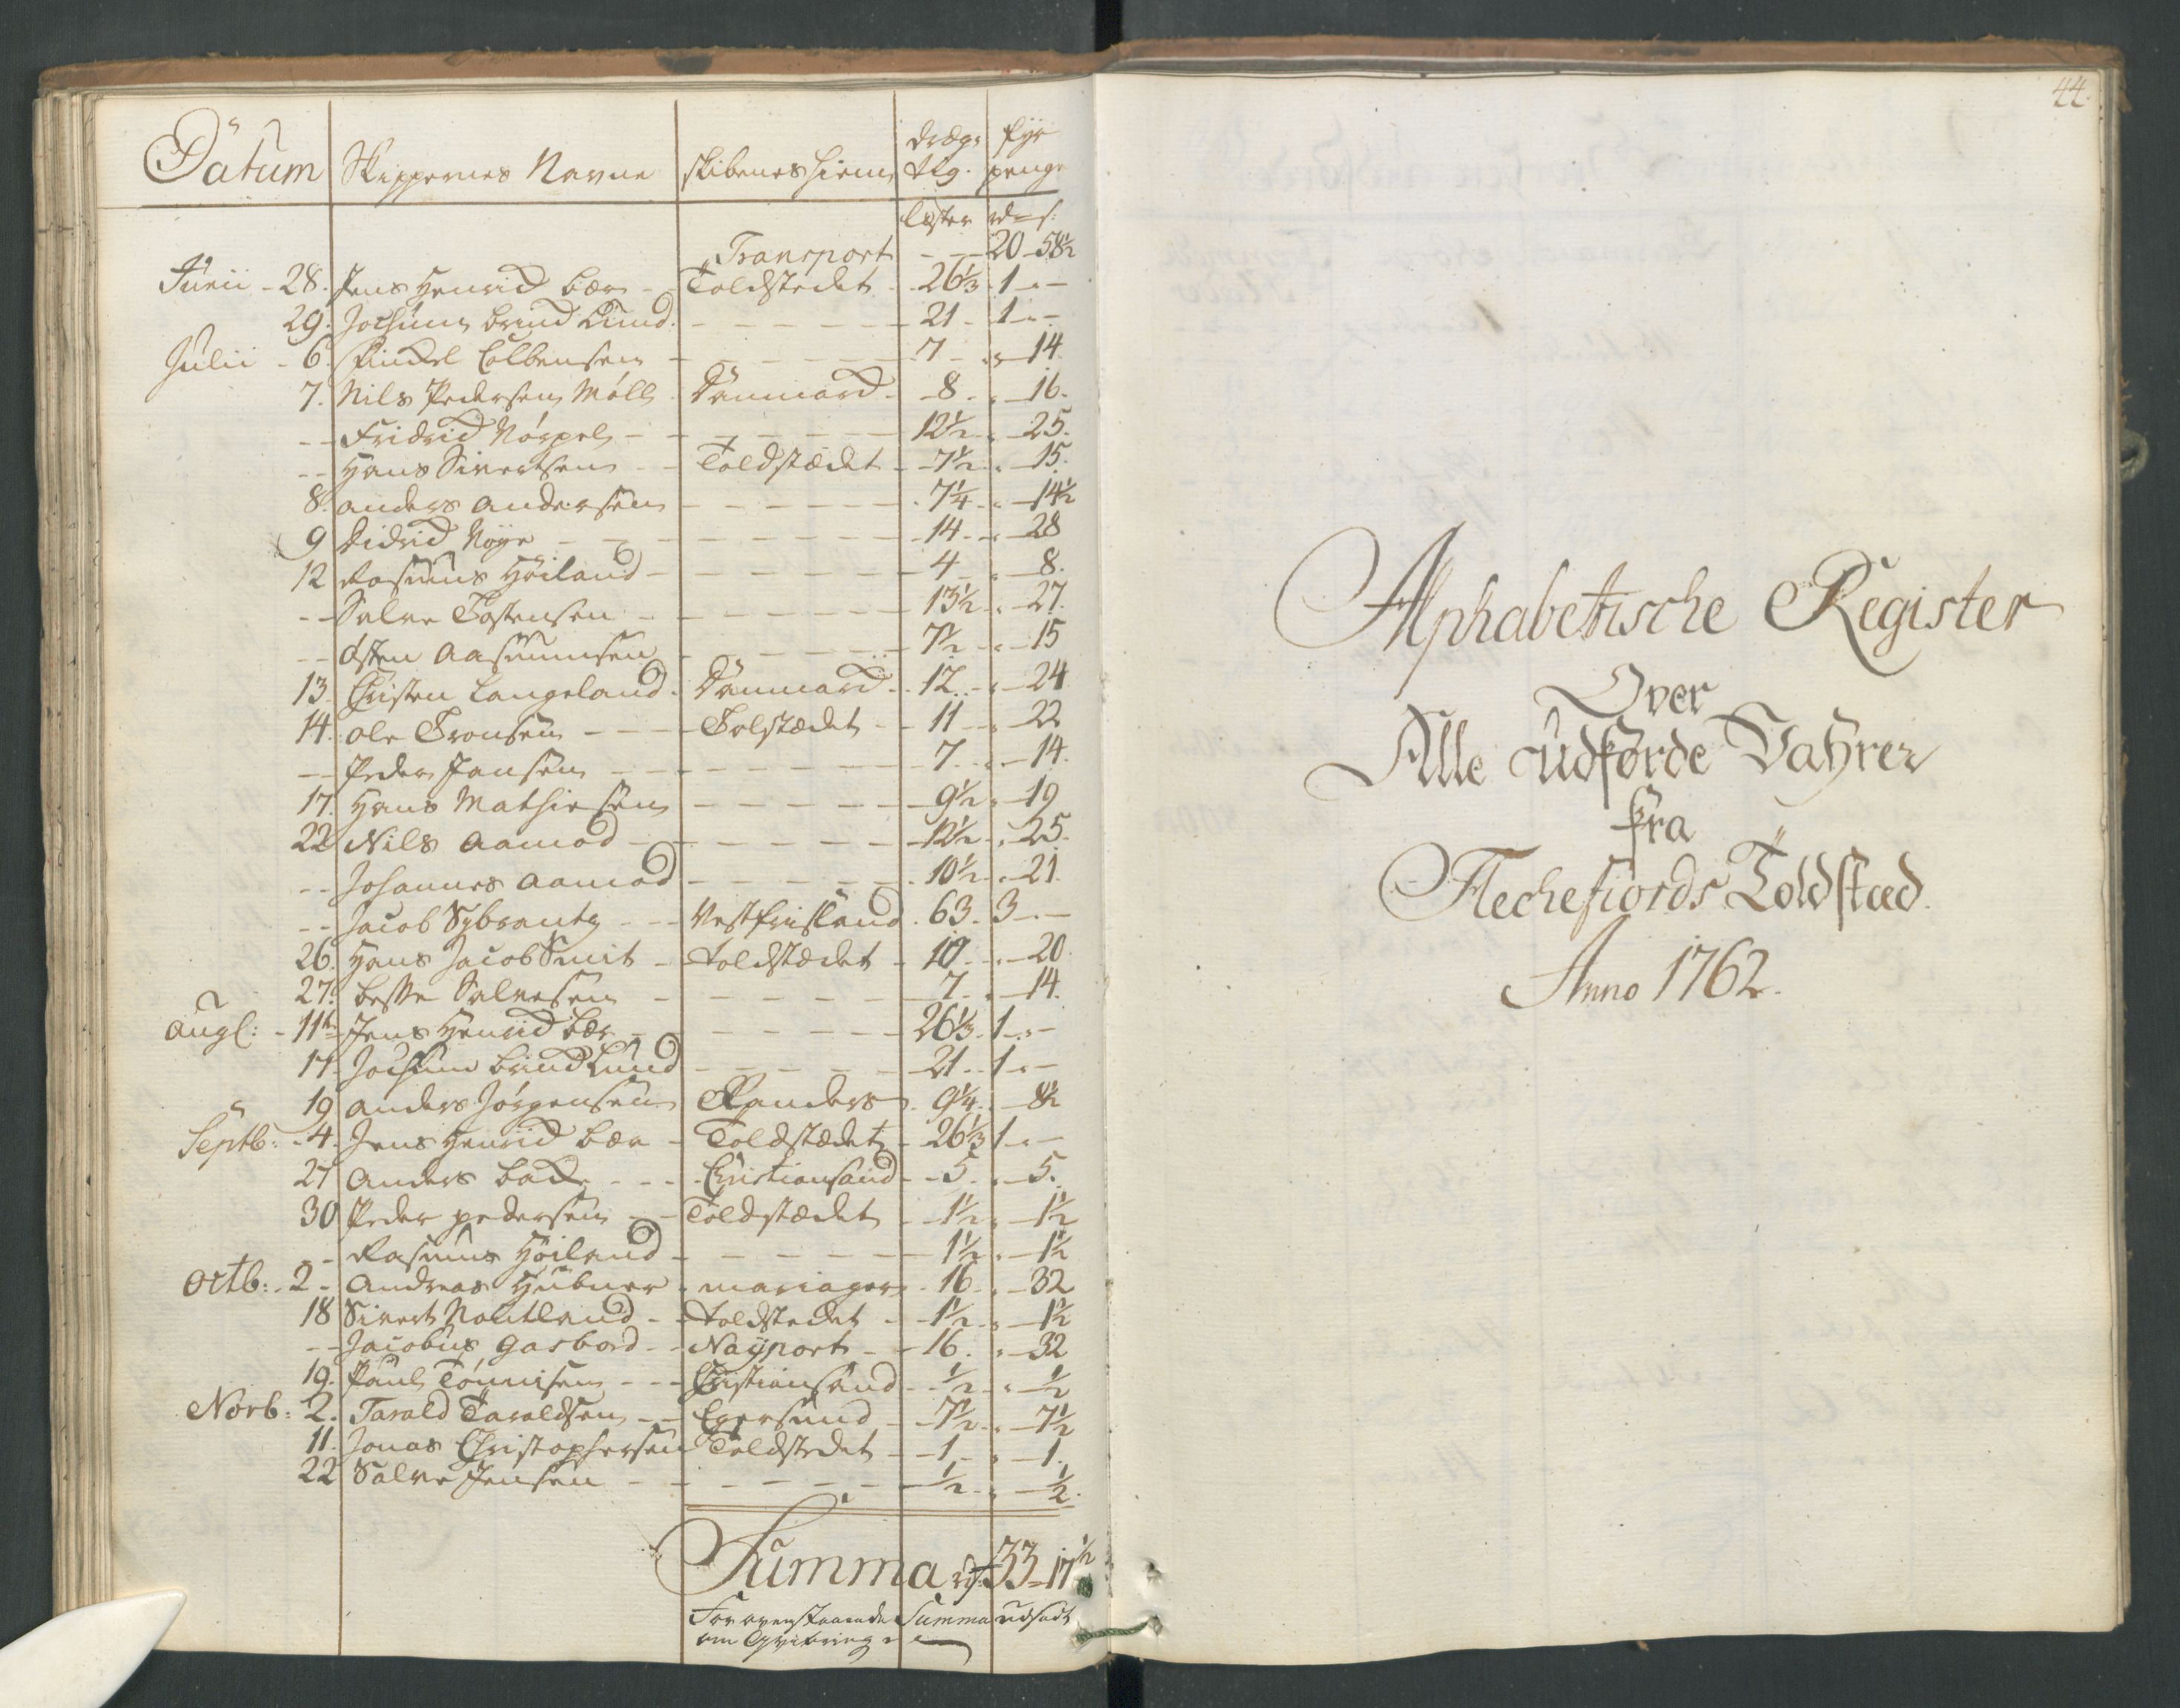 Datum Skippernes Navne skibenes hiem drægt. fyr
tig. penge
lester rd = s:
Transport - - 20 - 58½
Junii - 28. Jens Henrich bær - Toldstedet - 26⅓ 1 - -
29. Jochum brinch Lund - - - - 21 - 1 - -
Julii - 6. Colbensen - - - - 7 - " - 14
7. Nils Pedersen Møll Danmarch - 8 - " - 16.
- - Fridrich Nørpel - - - - 12½ " - 25.
- - Hans Sivertsen - - Toldstædet - 7½ " - 15.
8. anders andersen - - - - 7¼ " - 14½
9 Didrich Nøye - - - - 14 - " - 28
12 Rasmus Høiland - - - - 4 - " - 8.
- - Salve Tostensen - - - - 13½ " - 27.
- - østen aasmunsen - - - - 7½ " - 15
13. Christen Langeland - Danmarch - 12 - " - 24
14. ole Tronsen - - - Tolstædet - 11 - " - 22
- - Peder Jansen - - - - 7 - " - 14.
17. Hans Mathiesen - - - - 9½ " - 19
22 Nils aamod - - - - 12½ " - 25.
- - Johannes aamod - - - - 10½ " - 21.
- - Jacob Sybrants - - Vestfrisland . 63. 3 - -
26. Hans Jacob Smit - toldstædet - 10 - " - 20
27. Salvesen - - - - 7 - " - 14.
augl: - 11te Jens Henrich bær - - - - 26⅓ 1 - -
17. Jochum brinch Lund - - - - 21 - 1 - -
19 anders Jørgensen Randers - 9¼ - 8½
Septb: - 4. Jens Henrich bær - Toldstædet - 26⅓ 1 - -
27 anders - - - Christiansand - 5 - " - 5.
30 Peder pedersen - - Toldstædet - 1½ " - 1½
- Rasmus Høiland - - - - 1½ " - 1½
Octb: - 2 - andreas Hübner - mariager - 16 - " - 32
18 Sivert - - toldstedet - 1½ " - 1½
- - Jacobus gasbord - - Nayport - - 16. " - 32
19. Paul Tønnisen - - - Christiansand - ½ " - ½
Novb: 2. Tarald Taraldsen - - Egersund - 7½ " - 7½
11. Jonas Christophersen Toldstedet - 1 - " - 1.
22 Salve Jensen - - - - ½ " - ½.
Summa rd 33 - 17½
For ovenstaaende Summa udstedt
en Qvitering
44.
Alphabetische Register
Over
Alle udførde Vahrer
fra
Flechefiords Toldstæd.
Anno 1762.